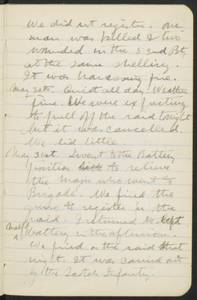 We did not register. One
man was killed & two
wounded in the 52nd Bty
at the same shelling.
It was harassing fire.
May 30th. Quiet all day. Weather
fine. We were expecting
to pull off the raid tonight
but it was cancelled.
We did little
May 31st. I went to the Battery
position to relieve
the Major who went to
Brigade. We fired the
guns to register in the
raid. I returned to
Battery in the afternoon.
We fired on the raid that
night. It was carried out
by the Scotch Infantry